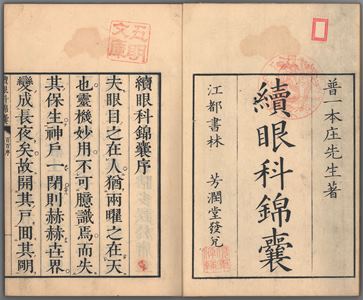 普一本庄先生著
續眼科錦囊
江都書林 芳潤堂發兌
續眼科錦囊序
夫眼目之在人猶兩曜之在天
也靈機妙用不可臆識焉而失
其保生神戶一閉則赫赫世界
變成長夜矣故開其戶回其剛